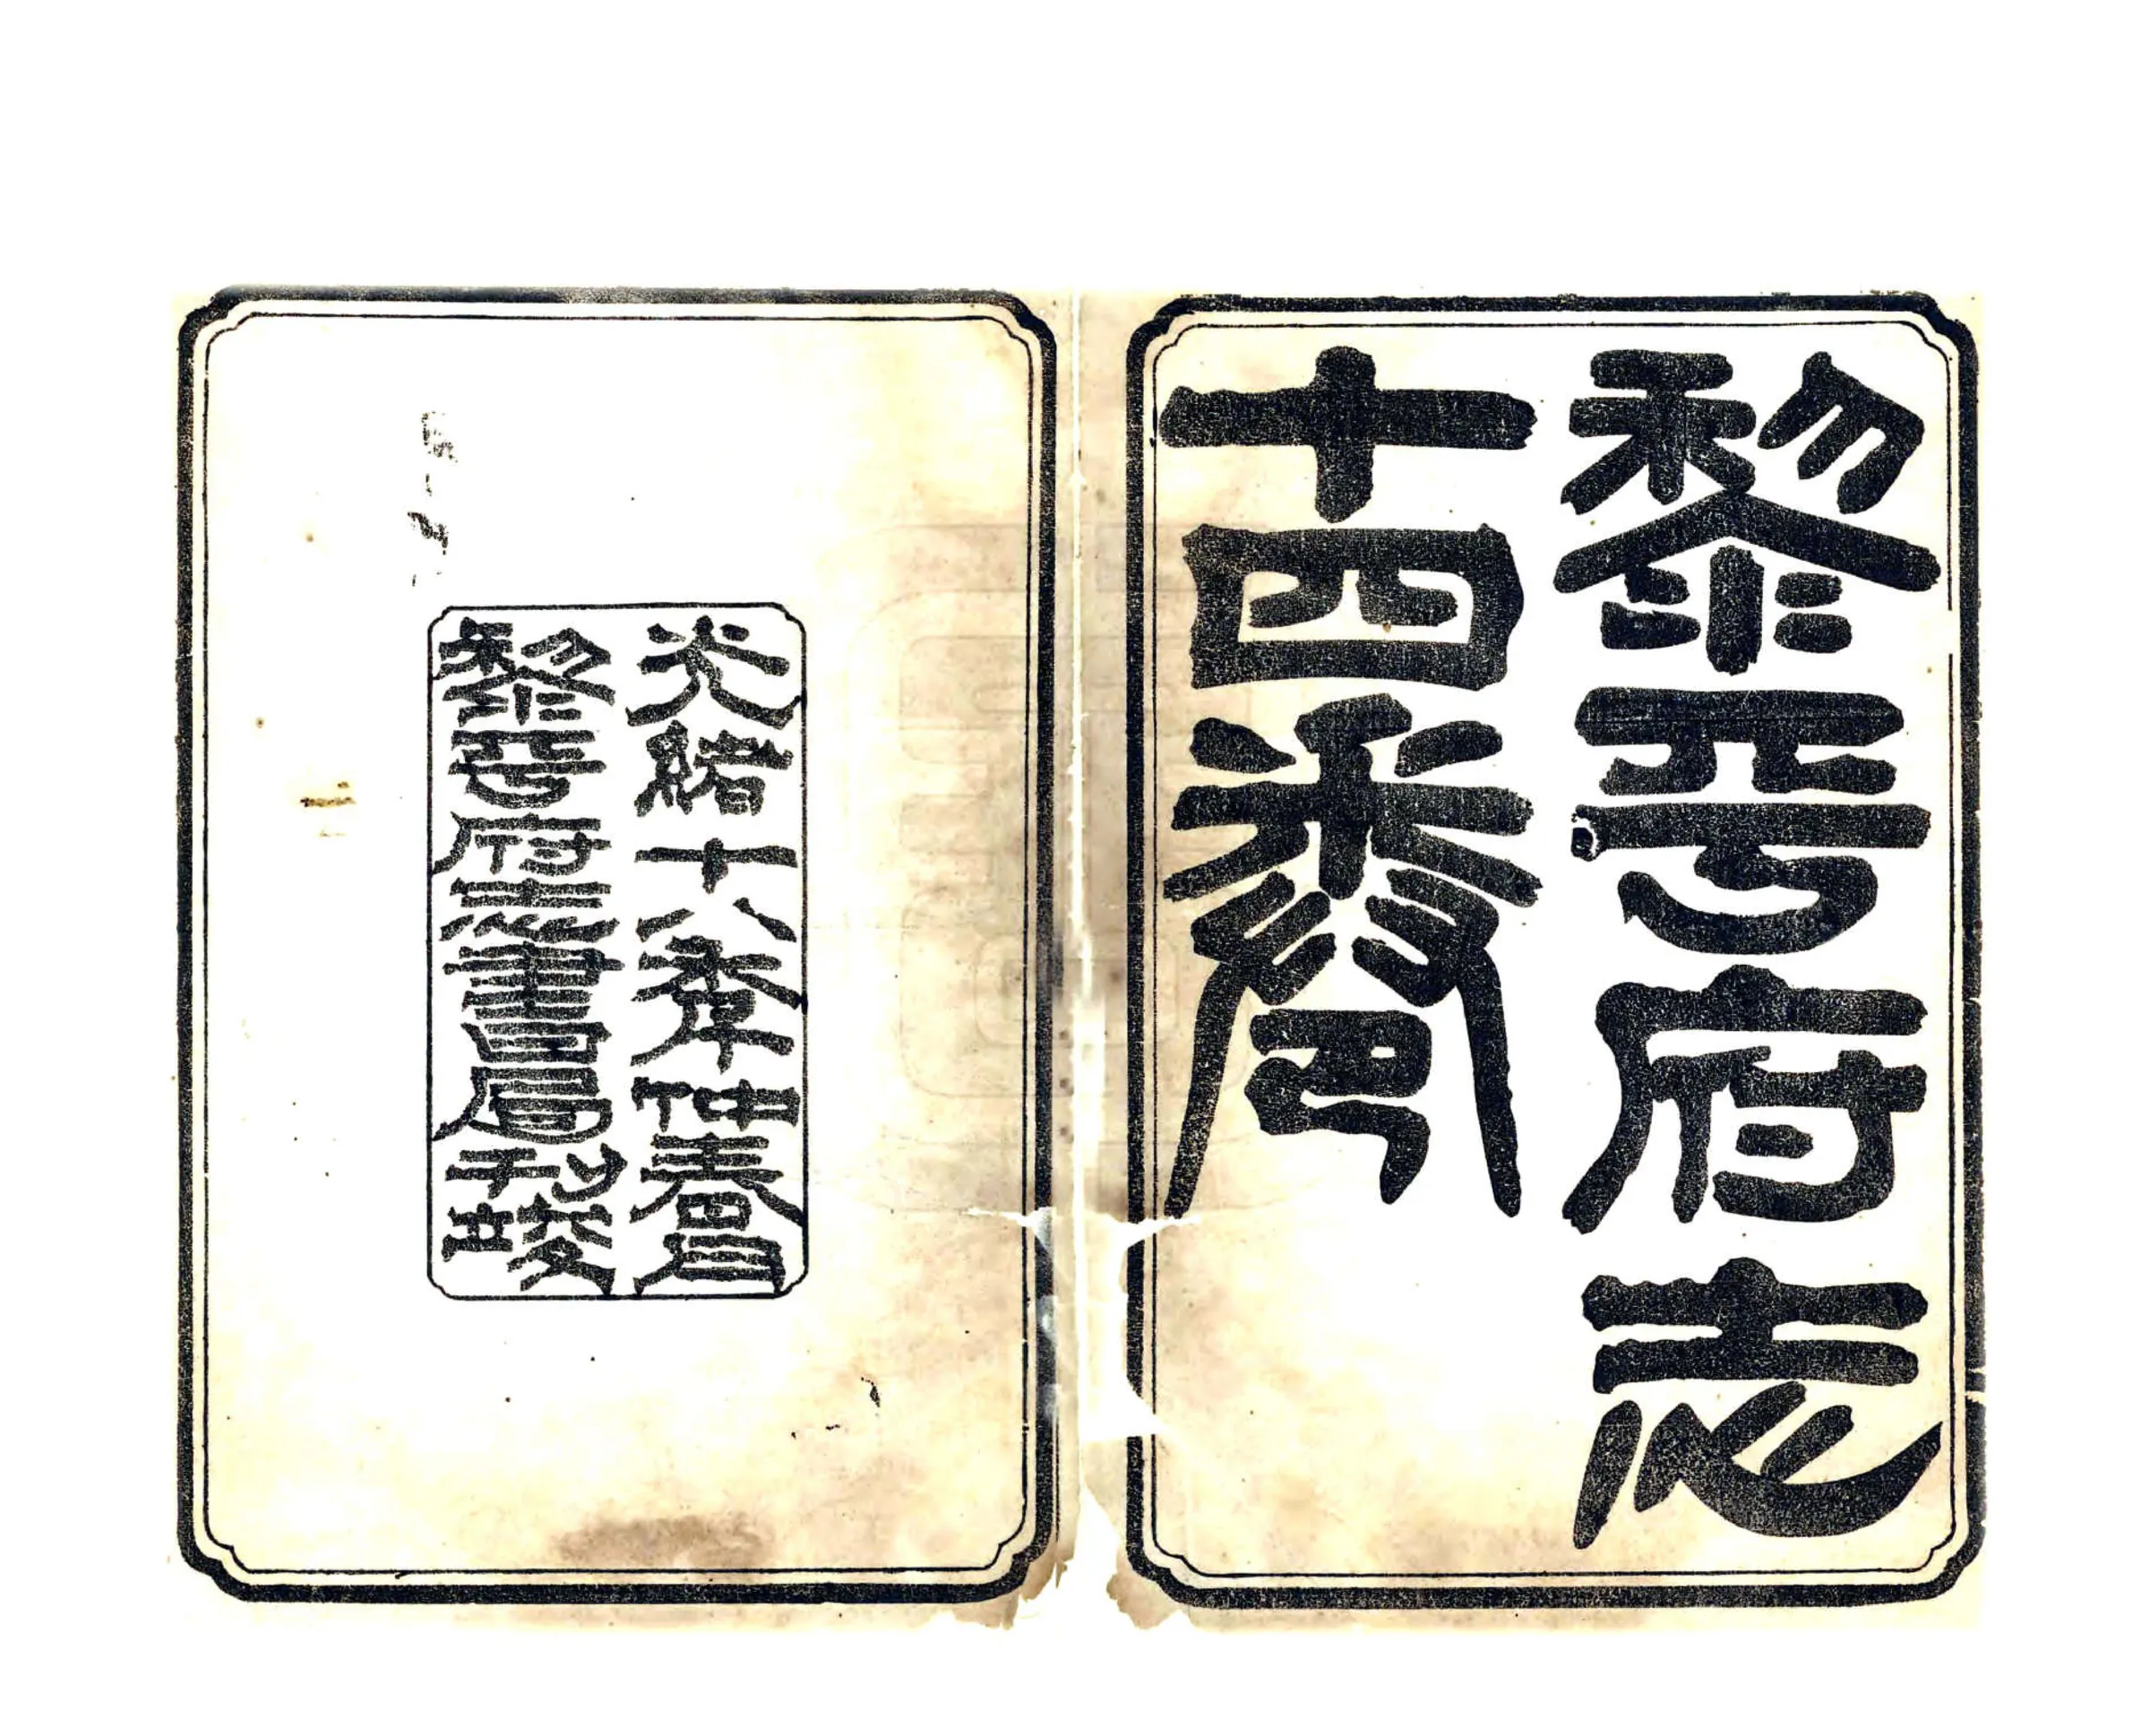 黎平府志
十四卷
光緒十八秊仲春月
黎平府志書局刊竣